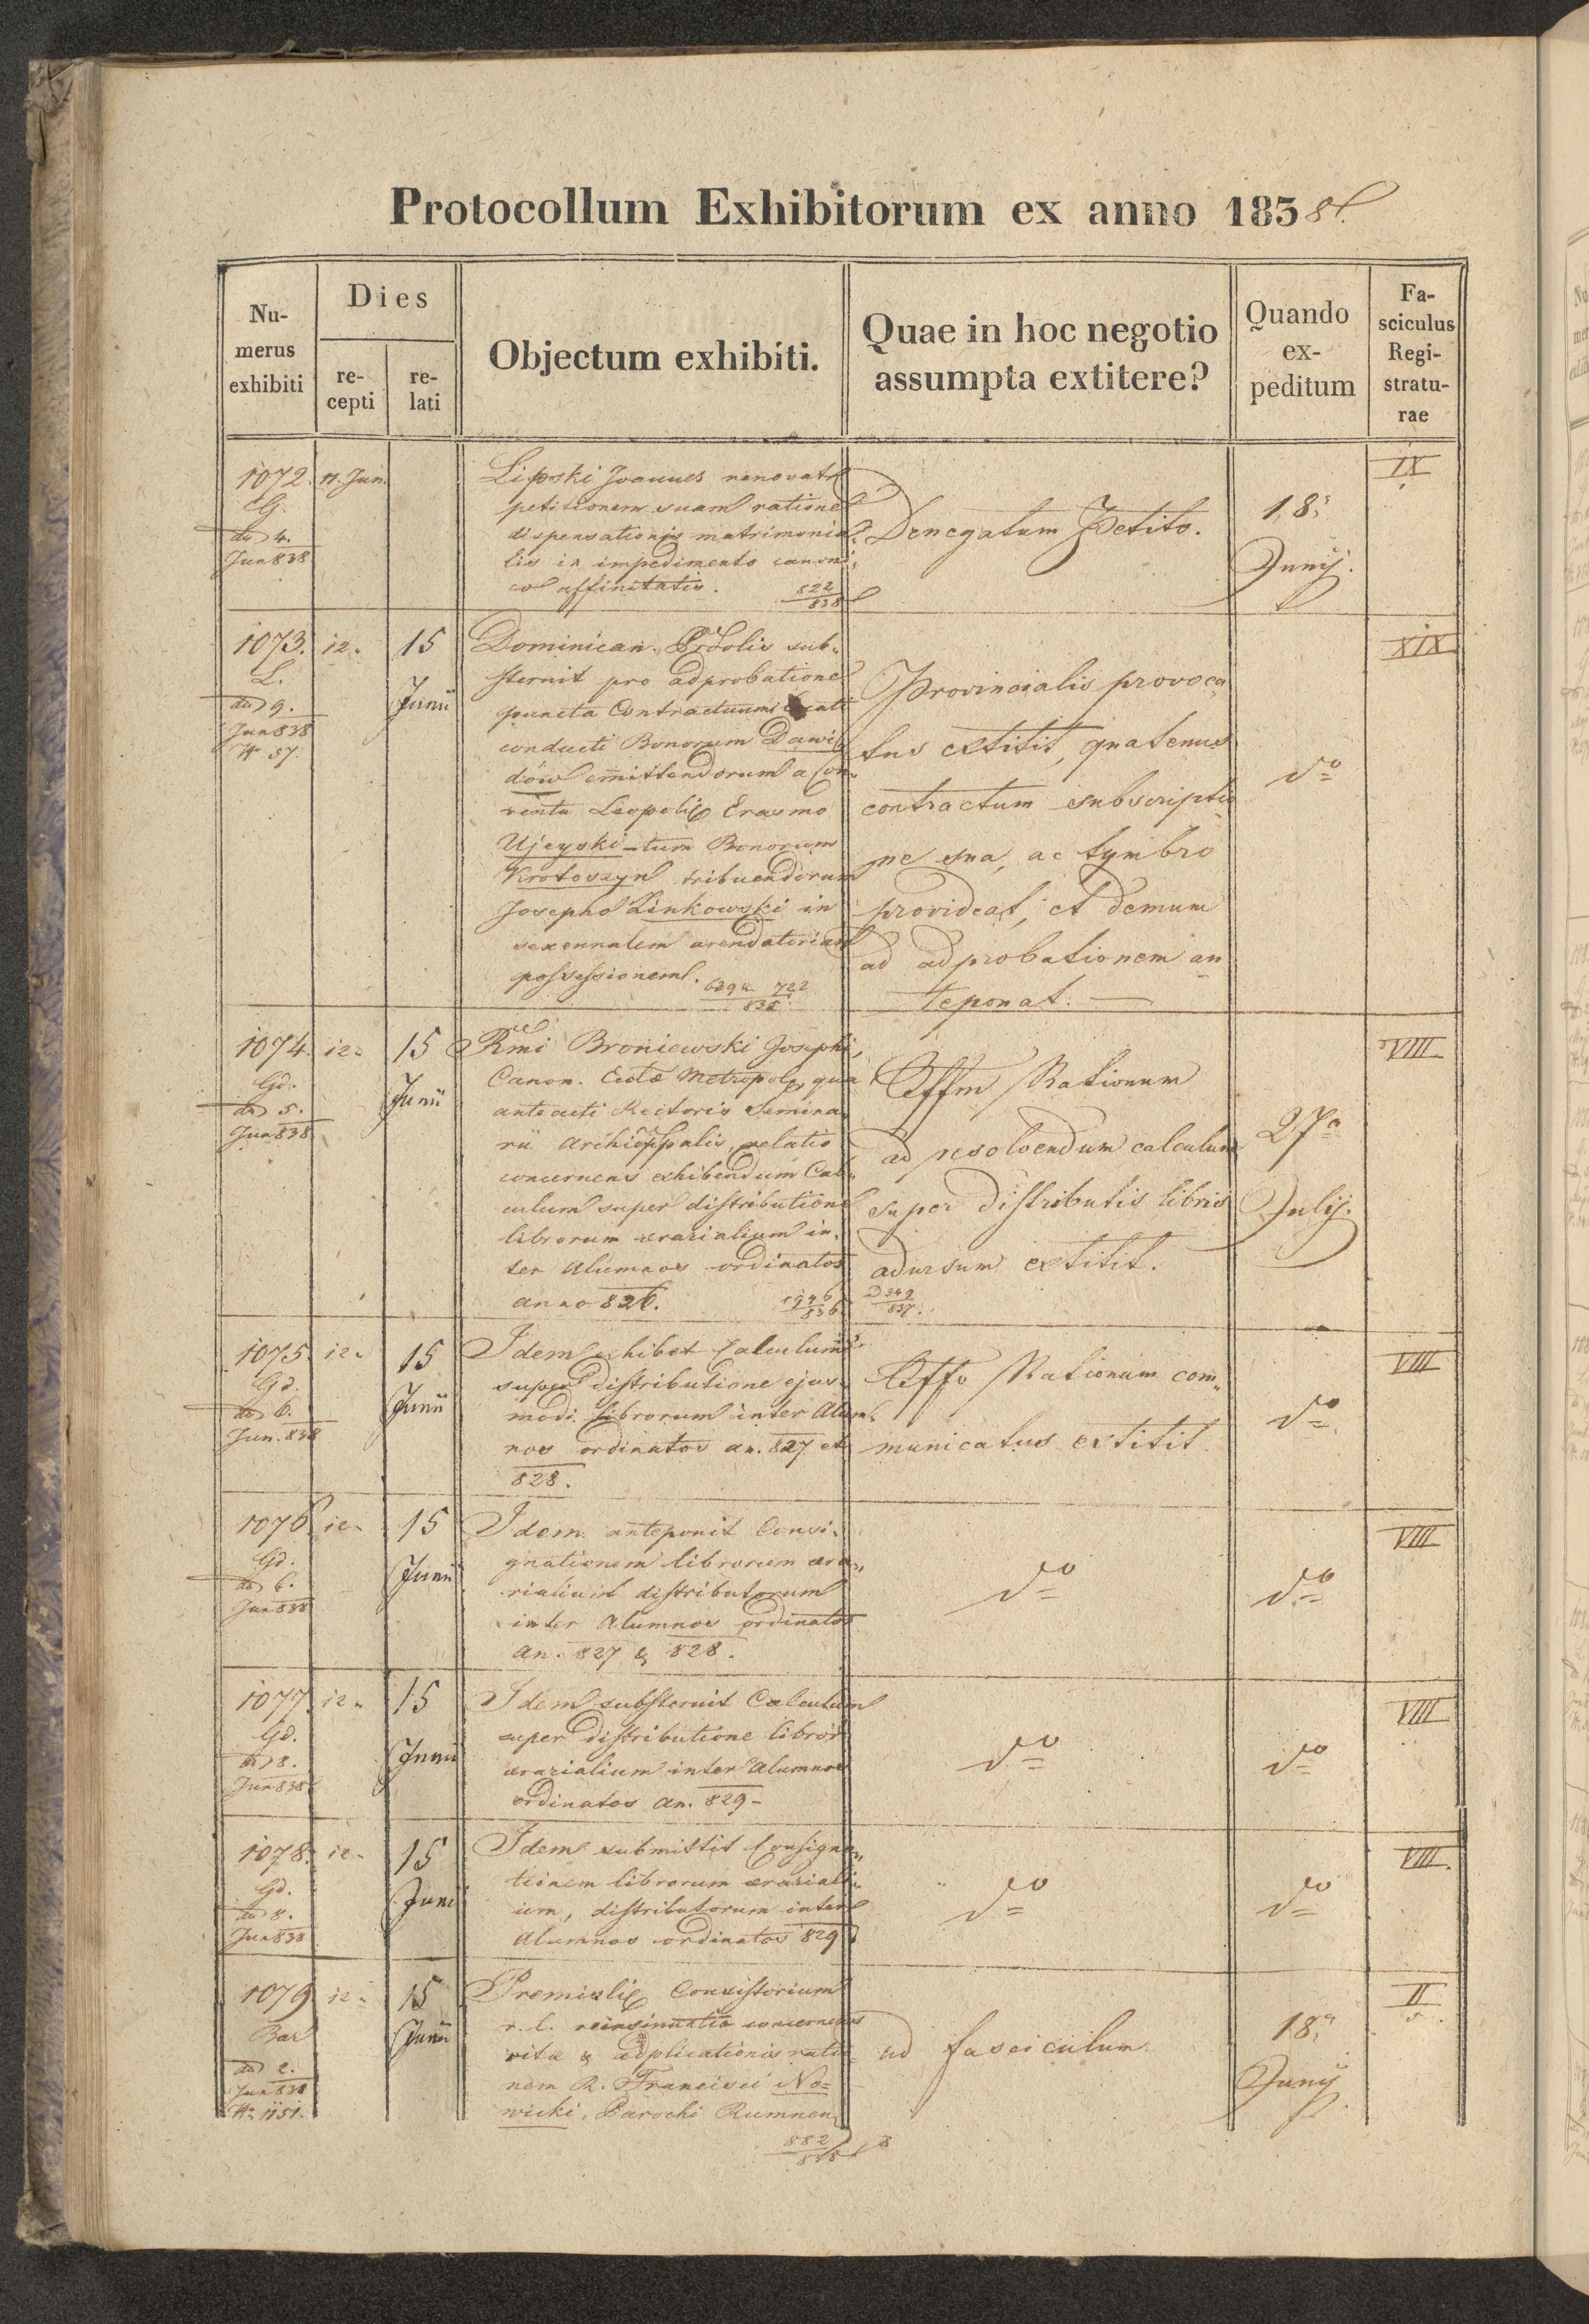 Protocollum Exhibitorum ex anno 1838.
Nu-
merus
exhibiti
Dies
re-
cepti
re-
lati
Objectum exhibiti.
Quae in hoc negotio
assumpta extitere?
Quando
ex-
peditum
Fa-
sciculus
Regi-
stratu-
rae
1072. 11. Jun.
G.
dd 4.
Jun 838
Lipski Joannes renovat
petitionem suam ratione
dispensationis matrimonia-
lis in impedimento canoni-
co affinitatis. 822
838
Denegatum Petito.
18a
Junij.
IX
1073. 12. 15
L.
dd 9.
Jun 838
№ 57.
Junii
Dominican. Prolis sub-
sternit pro adprobatione
puncta Contractuum locati
conducti Bonorum Dawi-
dów emittendorum a Con-
ventu Leopolię Erasmo
Ujeyski - tum Bonorum
Krotoszyn tribuendorum
Josepho Linkowski in
sexennalem arendatoriam
possessionem. 629 & 722
838.
Provincialis provoca-
tus extitit, quatenus
contractum subscriptio-
ne sua, ac tymbro
provideat, et demum
ad adprobationem an-
teponat. —
do
XIX
1074. 12. 15
Gd.
dd 5.
Jun 838
Junii
Rmi Broniewski Josephi,
Canon. Eccłæ Metropolę, qua
anteacti Rectoris Semina-
rii Archiȩppalis, relatio
concernens exhibendum Cal-
culum super distributione
librorum ærarialium in-
ter Alumnos ordinatos
anno 826. 1946
836
Offm Rationum
ad resolvendum calculum
super distributis libris
adursum extitit.
D 349
837.
27a
Julij.
VIII
1075. 12. 15
Gd.
dd 6.
Jun. 838
Junii
Idem exhibet Calculum
super distributione ejus-
modi librorum inter Alum-
nos ordinatos an. 827 et
828.
Offo Rationum com-
municatus extitit
do
VIII
1076. 12. 15
Gd.
dd 6.
Jun 838
Junii
Idem anteponit Consi-
gnationem librorum æra-
rialium distributorum
inter Alumnos ordinatos
an. 827 & 828.
do
do
VIII
1077. 12. 15
Gd.
dd 8.
Jun 838
Junii
Idem substernit Calculum
super distributione libror
ærarialium inter Alumnos
ordinatos an. 829-
do
do
VIII
1078. 12. 15
Gd.
dd 8.
Jun 838
Junii
Idem submittit Consigna-
tionem librorum ærariali-
um, distributorum inter
Alumnos ordinatos 829
do
do
VIII.
1079 12. 15
Bar
dd 2.
Jun 838
№ 1151.
Junii
Premislię Consistorium
r. l. reinsinuatio concernens
vitæ & adplicationis ratio-
nem R. Francisci No=
wicki, Parochi Rumnen.
882
838
ad fasciculum.
18a
Junij
II